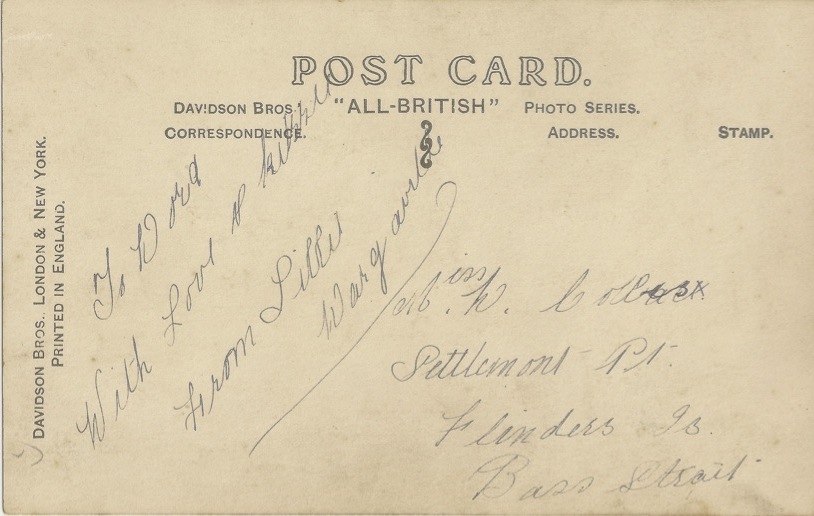 POST CARD.
DAVIDSON BROS' "ALL-BRITISH" PHOTO SERIES.
CORRESPONDENCE. ADDRESS. STAMP.
DAVIDSON BROS., LONDON & NEW YORK.
PRINTED IN ENGLAND.
To
With Love &
From
Miss
Settlemont Pt.
Flinders Is.
Bass Strait